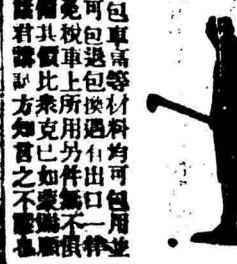 包車高等材料均可包用並
可包退包換遇有出口一律
免稅車上所用另件無不俱
備其價比衆克己如蒙賜顧
君請方知言之不